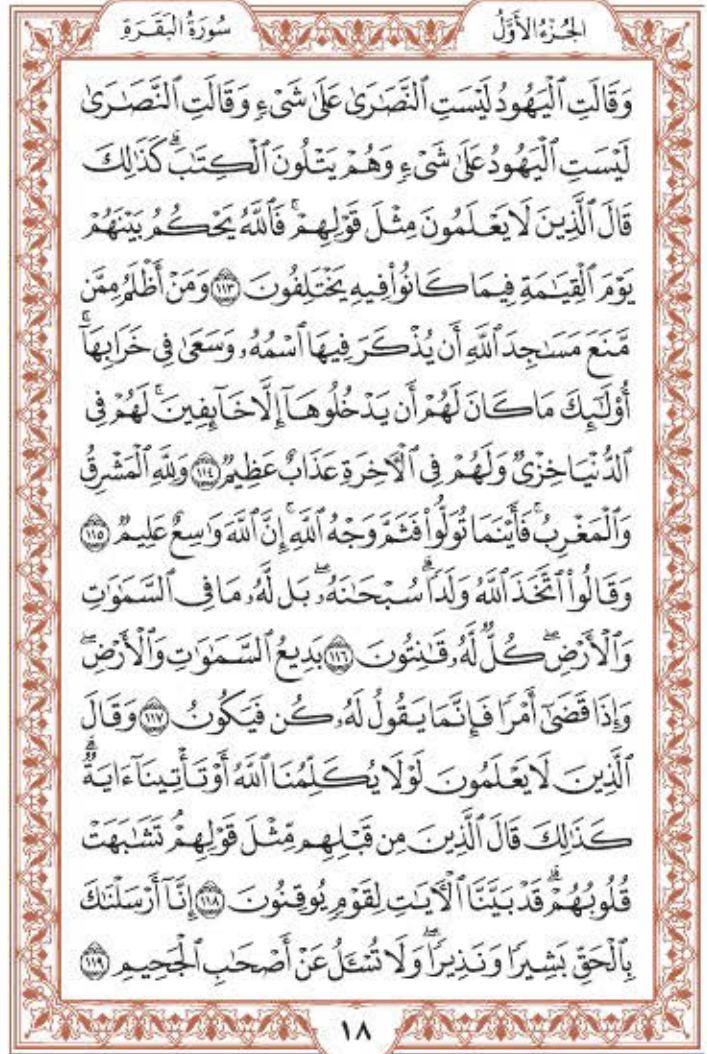 الجُزْءُ الأَوَّلُ
سُورَةُ الْبَقَرَةِ
وَقَالَتِ ٱلْيَهُودُ لَيْسَتِ ٱلنَّصَٰرَىٰ عَلَىٰ شَىْءٍ وَقَالَتِ ٱلنَّصَٰرَىٰ
لَيْسَتِ ٱلْيَهُودُ عَلَىٰ شَىْءٍ وَهُمْ يَتْلُونَ ٱلْكِتَٰبَۗ كَذَٰلِكَ
قَالَ ٱلَّذِينَ لَا يَعْلَمُونَ مِثْلَ قَوْلِهِمْۚ فَٱللَّهُ يَحْكُمُ بَيْنَهُمْ
يَوْمَ ٱلْقِيَٰمَةِ فِيمَا كَانُوا۟ فِيهِ يَخْتَلِفُونَ ١١٣ وَمَنْ أَظْلَمُ مِمَّن
مَّنَعَ مَسَٰجِدَ ٱللَّهِ أَن يُذْكَرَ فِيهَا ٱسْمُهُۥ وَسَعَىٰ فِى خَرَابِهَآۚ
أُو۟لَٰٓئِكَ مَا كَانَ لَهُمْ أَن يَدْخُلُوهَآ إِلَّا خَآئِفِينَۚ لَهُمْ فِى
ٱلدُّنْيَا خِزْىٌ وَلَهُمْ فِى ٱلْءَاخِرَةِ عَذَابٌ عَظِيمٌ ١١٤ وَلِلَّهِ ٱلْمَشْرِقُ
وَٱلْمَغْرِبُۚ فَأَيْنَمَا تُوَلُّوا۟ فَثَمَّ وَجْهُ ٱللَّهِۚ إِنَّ ٱللَّهَ وَٰسِعٌ عَلِيمٌ ١١٥
وَقَالُوا۟ ٱتَّخَذَ ٱللَّهُ وَلَدًاۗ سُبْحَٰنَهُۥۖ بَل لَّهُۥ مَا فِى ٱلسَّمَٰوَٰتِ
وَٱلْأَرْضِۖ كُلٌّ لَّهُۥ قَٰنِتُونَ ١١٦ بَدِيعُ ٱلسَّمَٰوَٰتِ وَٱلْأَرْضِۖ
وَإِذَا قَضَىٰٓ أَمْرًا فَإِنَّمَا يَقُولُ لَهُۥ كُن فَيَكُونُ ١١٧ وَقَالَ
ٱلَّذِينَ لَا يَعْلَمُونَ لَوْلَا يُكَلِّمُنَا ٱللَّهُ أَوْ تَأْتِينَآ ءَايَةٌۗ
كَذَٰلِكَ قَالَ ٱلَّذِينَ مِن قَبْلِهِم مِّثْلَ قَوْلِهِمْۘ تَشَٰبَهَتْ
قُلُوبُهُمْۗ قَدْ بَيَّنَّا ٱلْءَايَٰتِ لِقَوْمٍ يُوقِنُونَ ١١٨ إِنَّآ أَرْسَلْنَٰكَ
بِٱلْحَقِّ بَشِيرًا وَنَذِيرًاۖ وَلَا تُسْـَٔلُ عَنْ أَصْحَٰبِ ٱلْجَحِيمِ ١١٩
١٨